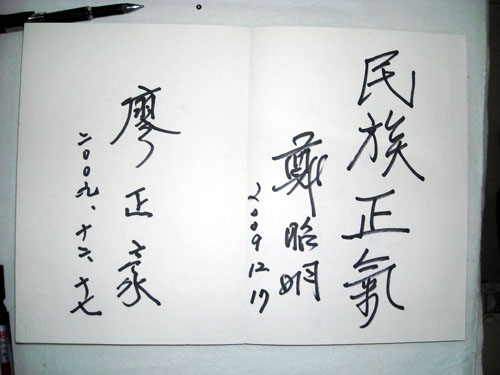 民族正氣
鄭昭明
2009.12.17
廖正豪
二〇〇九、十二、十七